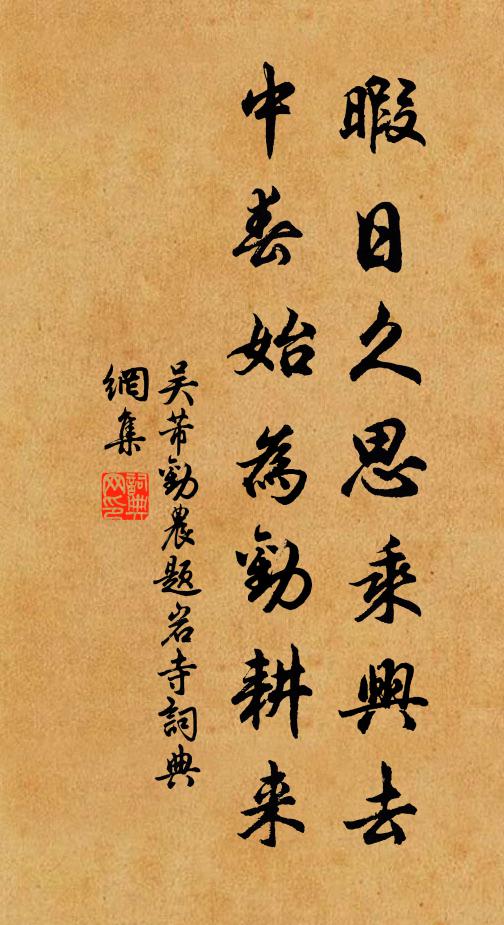 暇日久思乘興去
中春始為勸耕来
吴芾勸農题岩寺詞典
網集
詞典网印